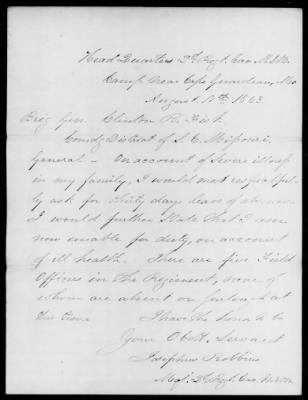 Head Quarters 2d Regt. Cav. M.S.M.
Camp Near Cape Girardeau, Mo
August 10th 1863.
Brig Gen. Clinton B. Fisk
Comdg District of S. E. Missouri.
General – On account of severe illness
in my family, I would most respectful-
ly ask for thirty days leave of absence
I would further state that I am
now unable for duty, on account
of ill health. There are five Field
Officers in the Regiment, none of
whom are absent on furlough at
this time
I have the honor to be
Your Obdt. Servant
Josephus Robbins
Maj. 2d Regt. Cav. M.S.M.